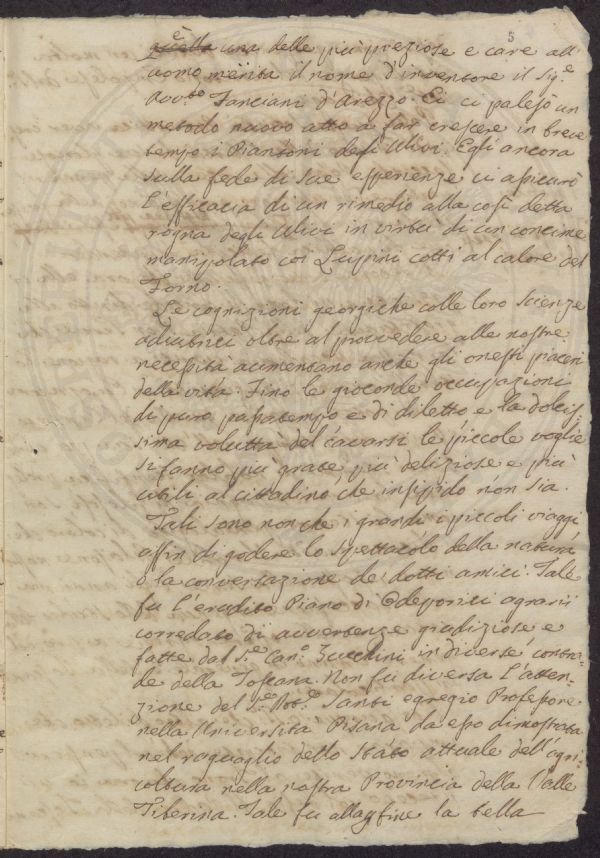 5
è
quella una delle più preziose e care all'
uomo merita il nome d'inventore il Sig.e
Avv.to Fanciani d'Arezzo. Ei ci palesò un
metodo nuovo atto a far crescere in breve
tempo i Piantoni degli Ulivi. Egli ancora
sulla fede di sue esperienze ci assicurò
l'efficacia di un rimedio alla così detta
rogna degli Ulivi in virtù di un concime
manipolato coi Lupini cotti al calore del
Forno.
Le cognizioni georgiche colle loro scienze
adiutrici oltre al provvedere alle nostre
necessità aumentano anche gli onesti piaceri
della vita. Fino le gioconde occupazioni
di puro passatempo e di diletto e la dolcis
sima voluttà del cavarsi le piccole voglie
si fanno più grate più deliziose e più
utili al cittadino che insipido non sia.
Tali sono non che i grandi i piccoli viaggi
affin di godere lo spettacolo della natura
o la conversazione de' dotti amici. Tale
fu l'erudito Piano di Odeporici agrarii
corredato di avvertenze giudiziose e
fatte dal S.e Can.o Zucchini in diverse contra=
de della Toscana. Non fu diversa l'atten=
zione del S.e Dot.e Santi egregio Professore
nella Università Pisana da esso dimostrata
nel raguaglio dello stato attuale dell'agri
coltura nella nostra Provincia della Valle
Tiberina. Tale fu alla fine la bella